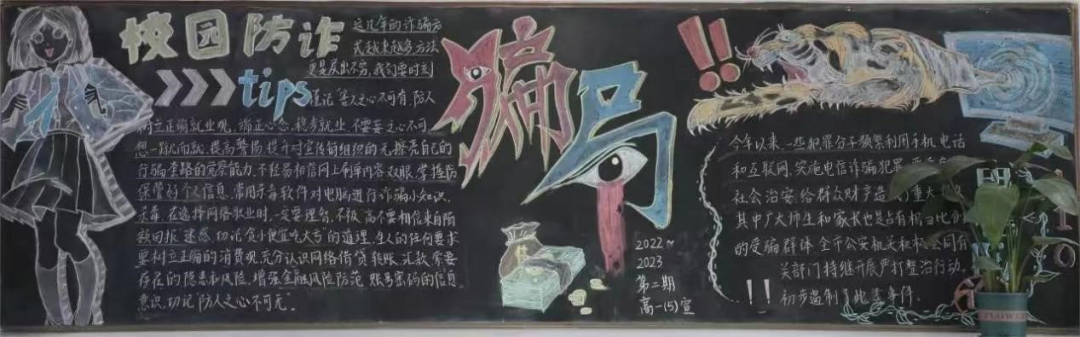 校园防诈
tips
这几年的诈骗方
式越来越多方法
更是层出不穷,我们要时刻
谨记“害人之心不可有,防人
树立正确就业观,端正心态,稳步就业,不要妄 之心不可
想一跃而就,提高警惕,提升对宣传简组织的无,擦亮自己的
行骗套路的 能力,不轻易相信网上刷单内容 双眼,掌握防
保管好个人信息,常用杀毒软件对电脑进行 诈骗小知识,
杀毒,在选择网络就业时,一定要理智,不被“高 不要相信来自陌
额回报”迷惑,切记“贪小便宜吃大亏”的道理, 生人的任何要求
要树立正确的消费观,充分认识网络借贷 转账、汇款需要
存在的隐患和风险,增强金融风险防范 账号密码的信息
意识,切记“防人之心不可无”
骗局
2022~
2023
第二期
高一(5)宣
!!
今年以来,一些犯罪分子频繁利用手机、电话
和互联网,实施电信诈骗犯罪,
社会治安,给群众财产造 重大
其中广大师生和家长也是占有相当比
的受骗群体,全 公安机关和 公司有
关部门持续开展严打整治行动,
初步遏制了此类事件.
!!
FLOWER